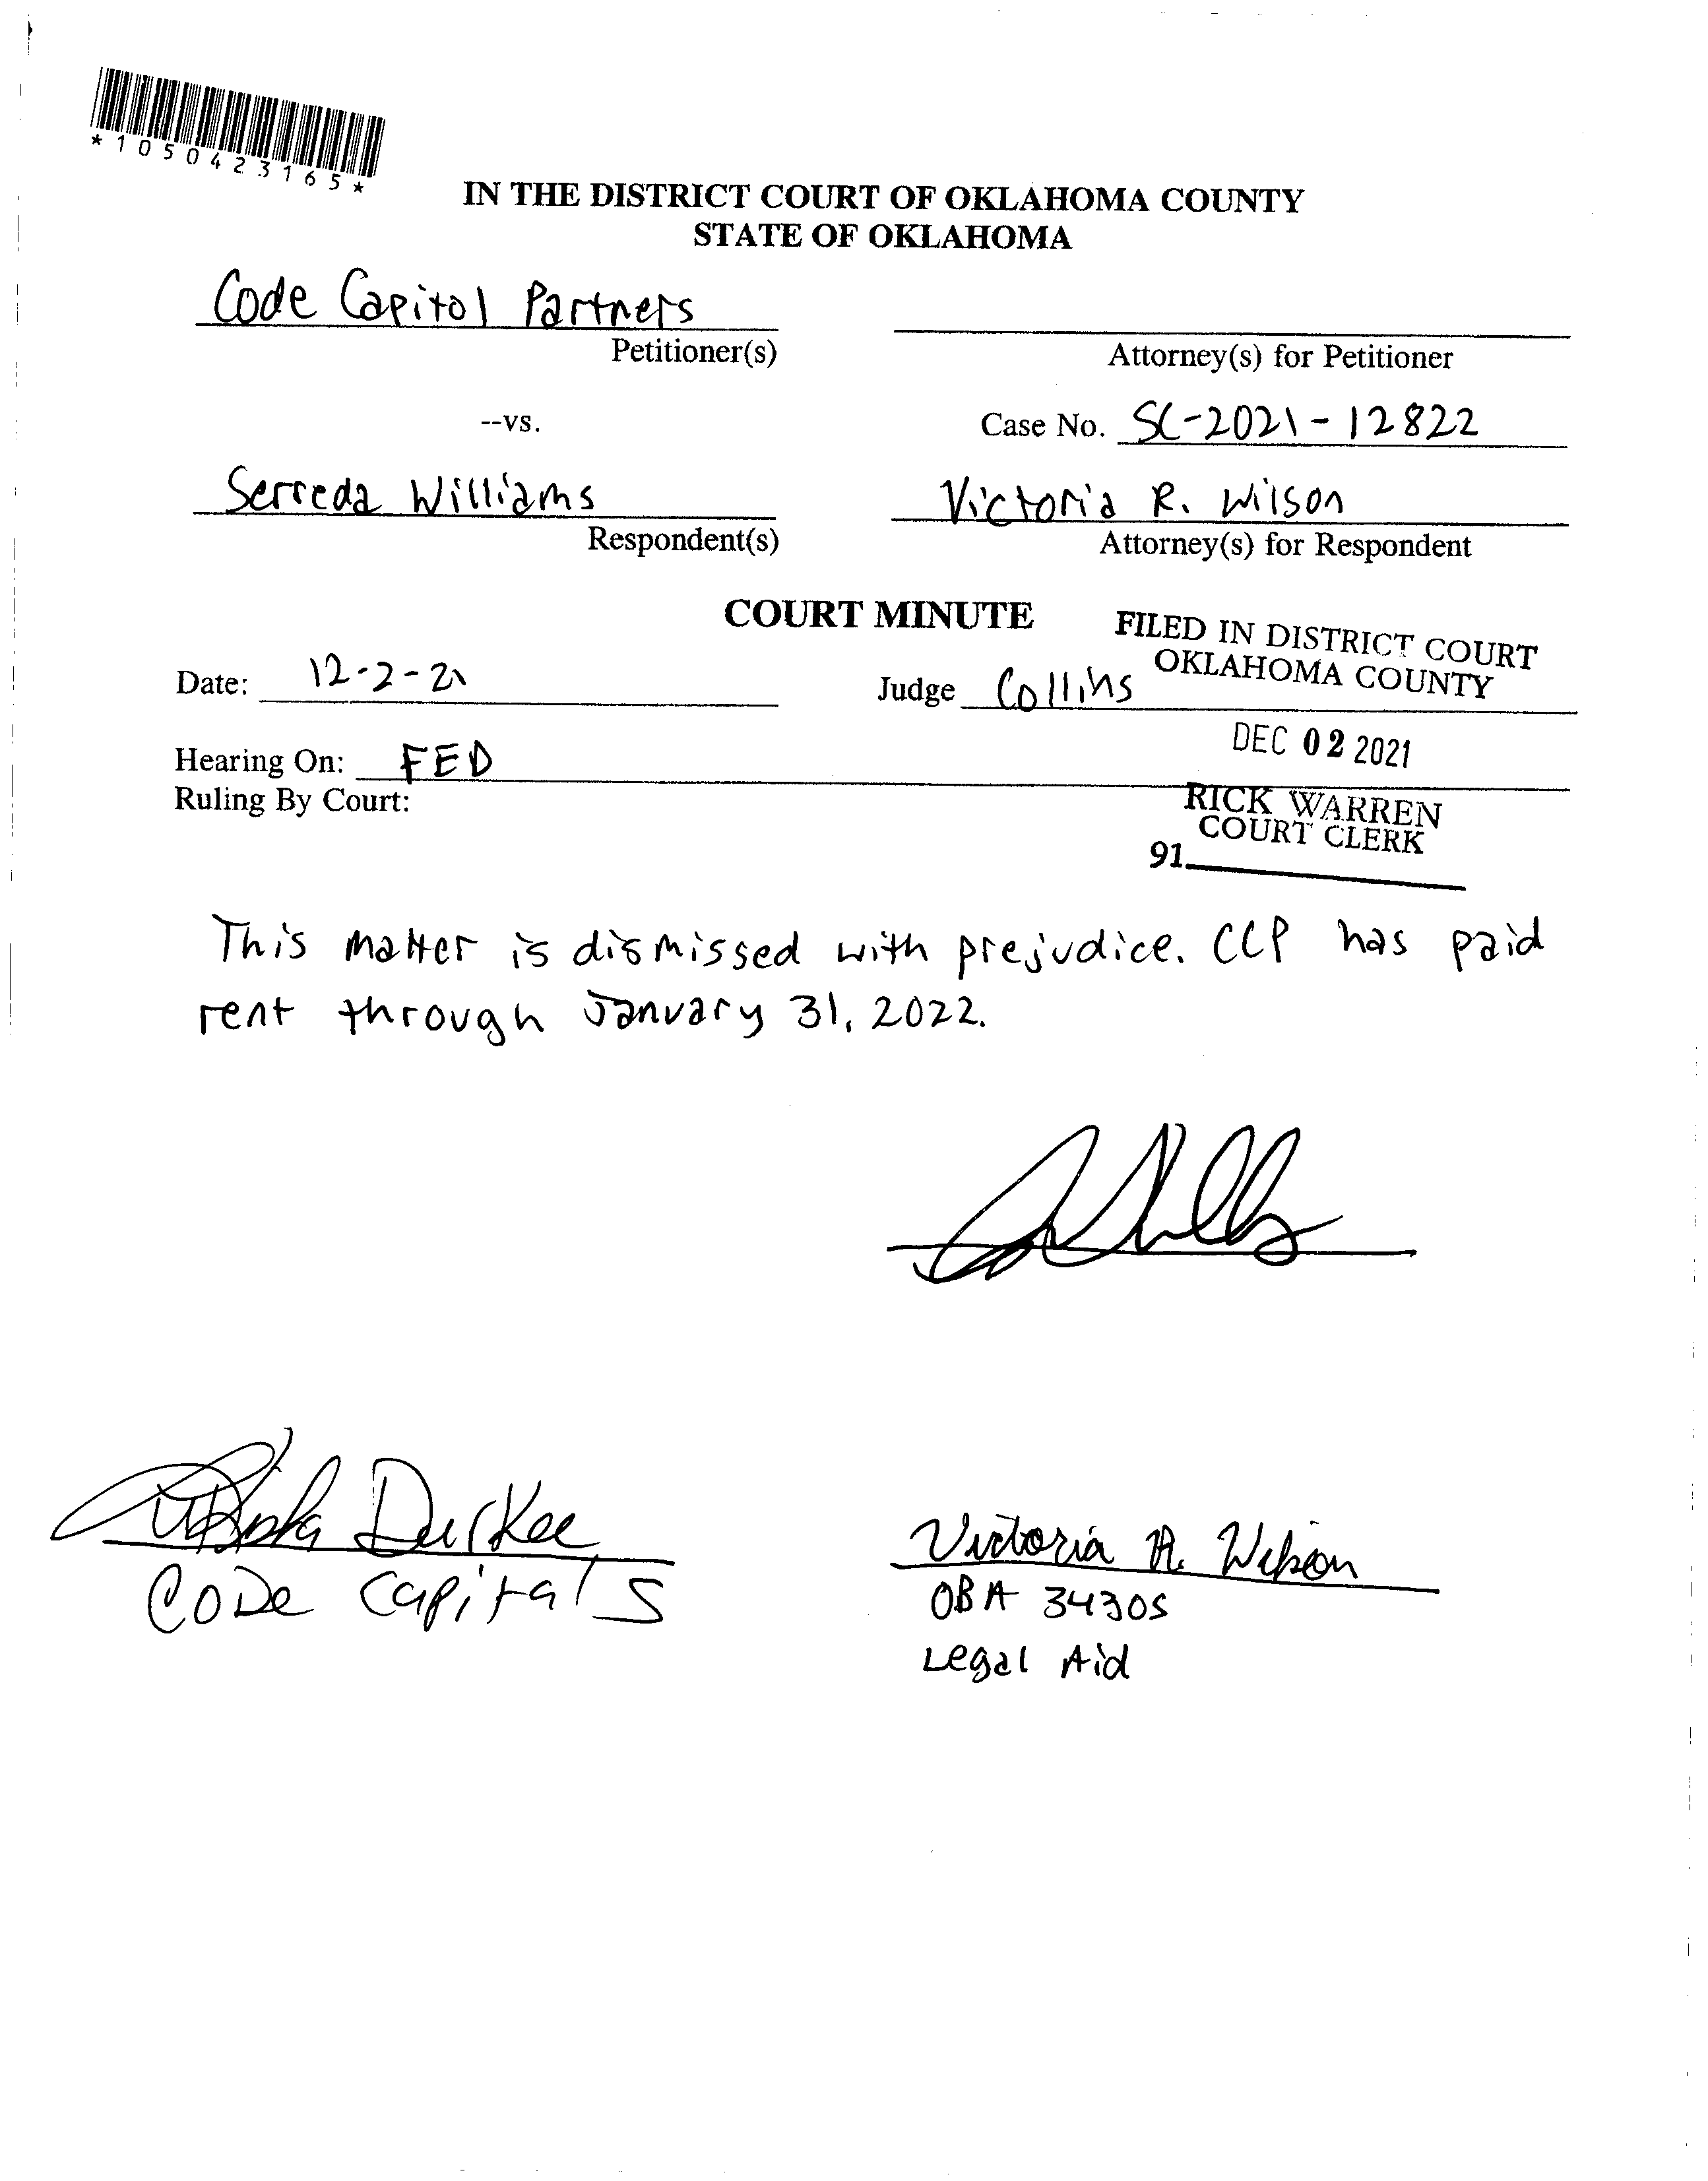 *1050423165*
IN THE DISTRICT COURT OF OKLAHOMA COUNTY
STATE OF OKLAHOMA
Code Capitol Partners
Petitioner(s)
Attorney(s) for Petitioner
--vs.
Case No. SC-2021-12822
Serreda Williams
Respondent(s)
Victoria R. Wilson
Attorney(s) for Respondent
COURT MINUTE
FILED IN DISTRICT COURT
OKLAHOMA COUNTY
Date: 12-2-21
Judge Collins
DEC 02 2021
Hearing On: FED
Ruling By Court:
RICK WARREN
COURT CLERK
91
This matter is dismissed with prejudice. CCP has paid
rent through January 31, 2022.
Durkee
Code Capitals
Victoria R. Wilson
OBA 34305
Legal Aid